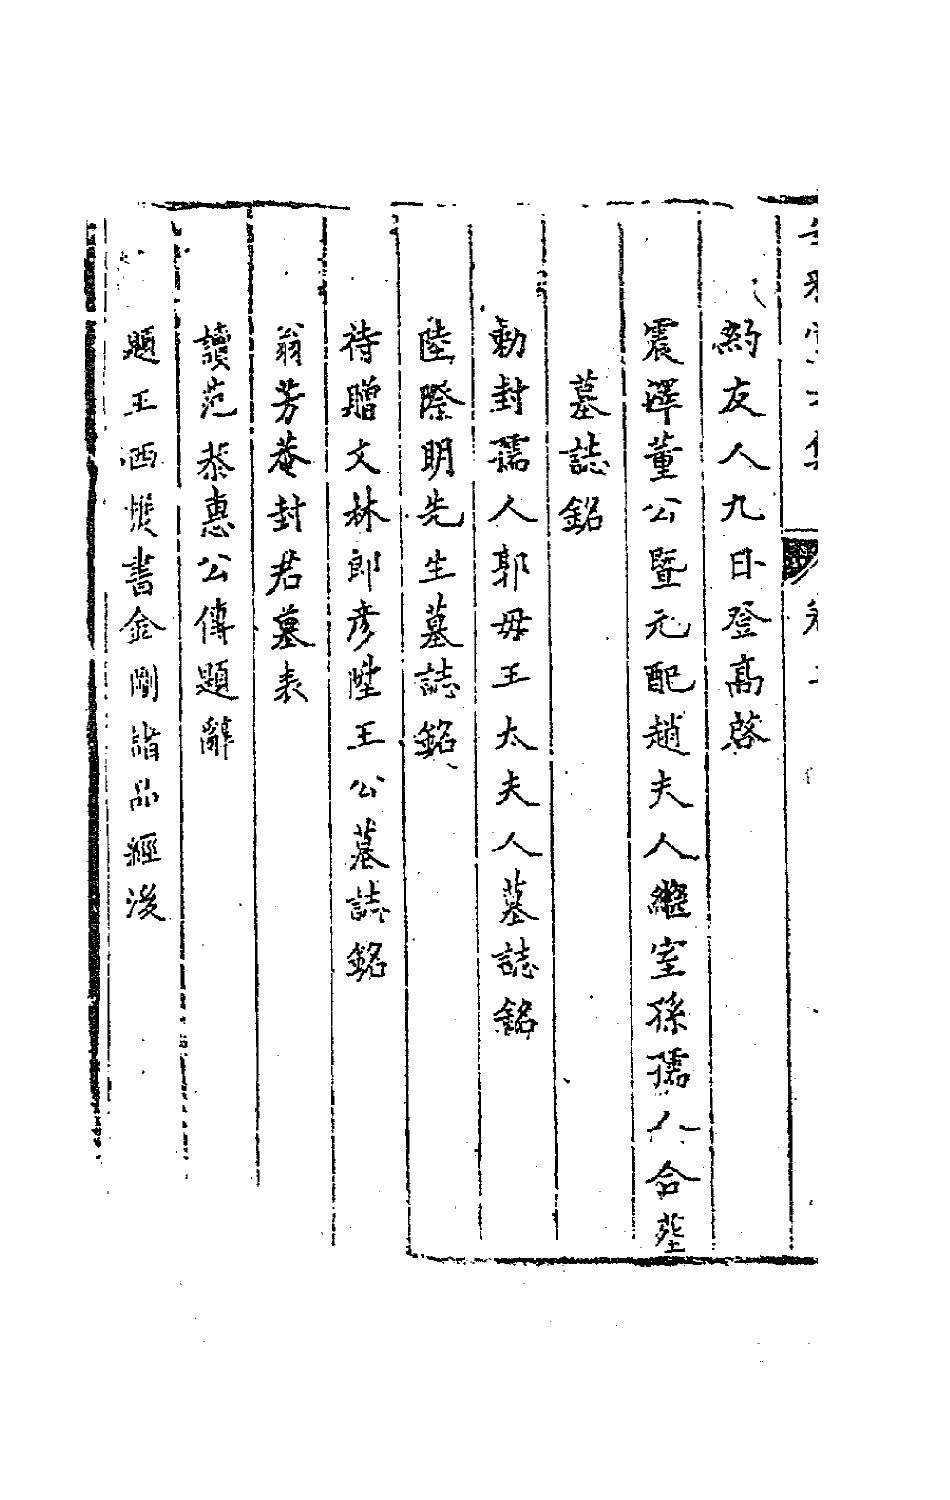 約友人九日登高啓
震澤董公暨元配趙夫人繼室孫孺人合塟
墓誌銘
勅封孺人郭母王太夫人墓誌銘
陸際明先生墓誌銘
待贈文林郎彦陞王公墓誌銘
翁芳菴封君墓表
讀范恭惠公傳題辭
題王西樵書金剛諸品經後